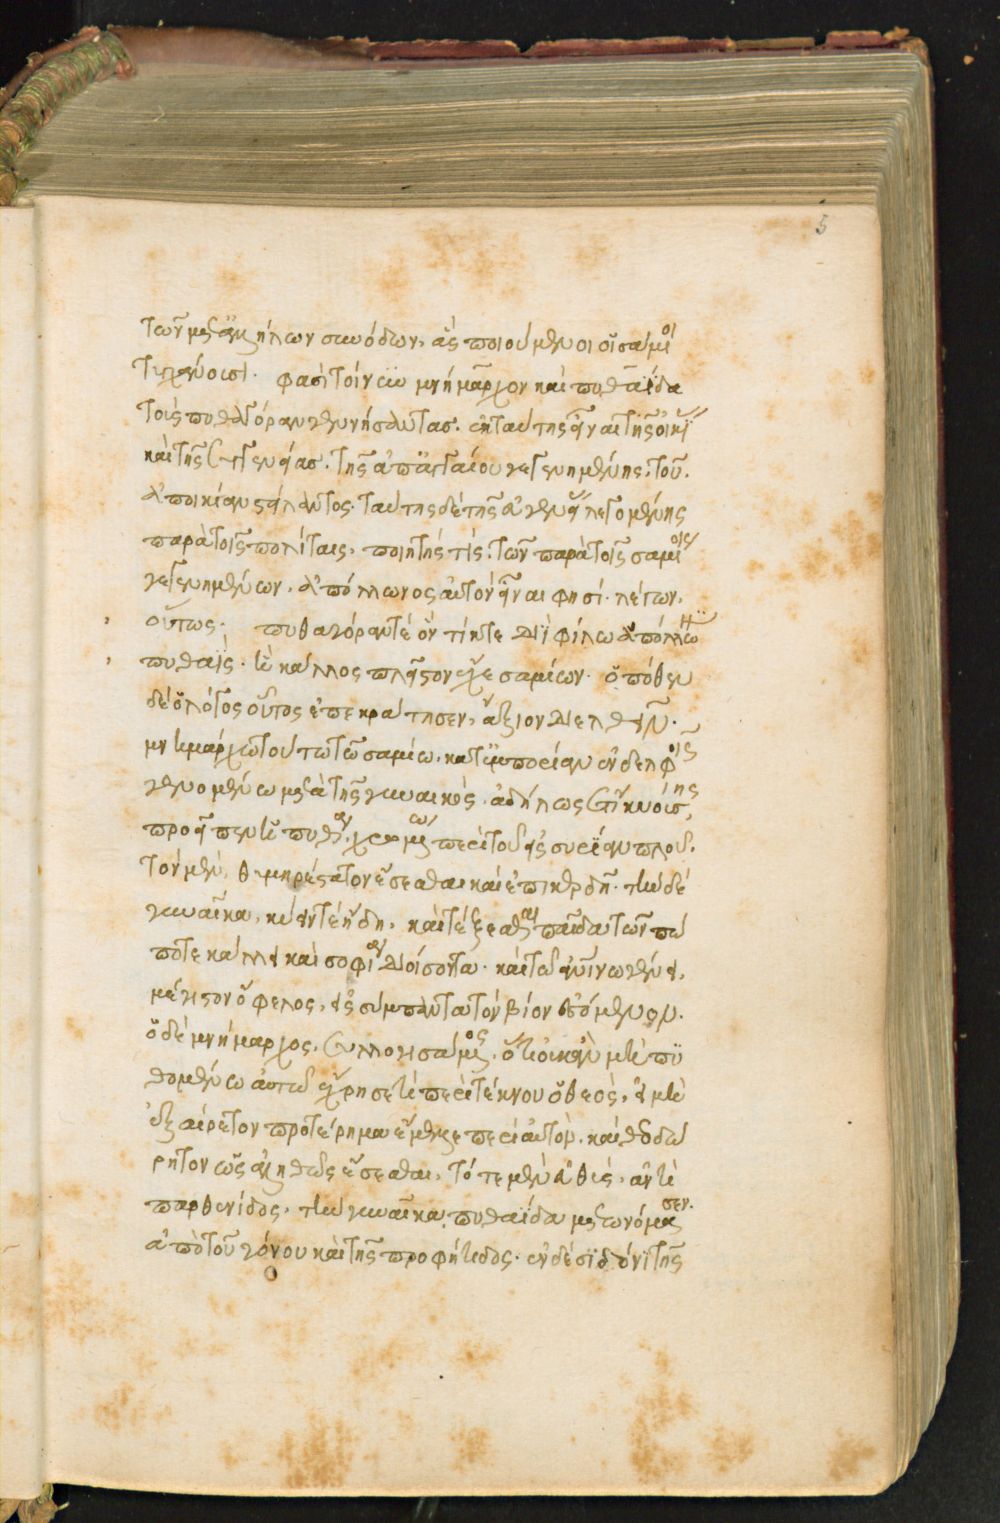 5
τῶν μετ' ἀλλήλων συνόδων, ἃς ποιούμενοι οἱ σάμιοι
τυγχάνουσι. φασὶ τοίνυν μνήμαρχον καὶ πυθαΐδα
τοὺς πυθαγόραν γεννήσαντας. ἐκ ταύτης εἶναι τῆς οἰκί
καὶ τῆς συγγενείας. τῆς ἀπ' ἀγκαίου γεγενημένης, τοῦ.
ἀποικίαν στείλαντος. ταύτης δὲ τῆς εὐγενεί λεγομένης
παρὰ τοῖς πολίταις, ποιητής τις. τῶν παρὰ τοῖς σαμίοις
γεγενημένων, ἀπόλλωνος αὐτὸν εἶναι φησί. λέγων,
οὕτως. πυθαγόραν τὲ ὃν τίκτε διῒ φίλω ἀπόλλωνι
πυθαΐς. ἣ κάλλος πλεῖστον εἶχε σαμίων. ὁπόθεν
δὲ ὁ λόγος οὗτος ἐπεκράτησεν, ἄξιον διελθεῖν.
μνημάρχω τούτω τῶ σαμίω, κατ' ἐμπορίαν ἐν δελφοῖς
γενομένω μετὰ τῆς γυναικὸς, ἀδήλως ἔτι κυούσης,
προεῖπεν ἡ πυθία, χρωμένω περὶ τοῦ εἰς συρίαν πλοῦ.
τὸν μὲν, θυμηρέστατον ἔσεσθαι καὶ ἐπικερδῆ. τὴν δὲ
γυναῖκα, κύειν τὲ ἤδη, καὶ τέξεσθαι παῖδα τῶν πώ
ποτε κάλλει καὶ σοφία διοίσοντα. καὶ τῶ ἀνθρωπίνω γένει,
μέγιστον ὄφελος, εἰς σύμπαντα τὸν βίον ἐσόμενον.
ὁ δὲ μνήμαρχος, συλλογισάμενος, ὅτι οὐκ ἂν μὴ πυ
θομένω αὐτῶ ἔχρησέ τι περὶ τέκνου ὁ θεὸς, εἰ μὴ
ἐξαίρετον προτέρημα ἔμελλε περὶ αὐτὸν, καὶ θεοδώ
ρητον ὡς ἀληθῶς ἔσεσθαι, τότε μὲν εὐθὺς, ἀντὶ
παρθενίδος, τὴν γυναῖκα πυθαΐδα μετωνόμασεν.
ἀπὸ τοῦ γόνου καὶ τῆς προφήτιδος. ἐν δὲ σιδόνι τῆς